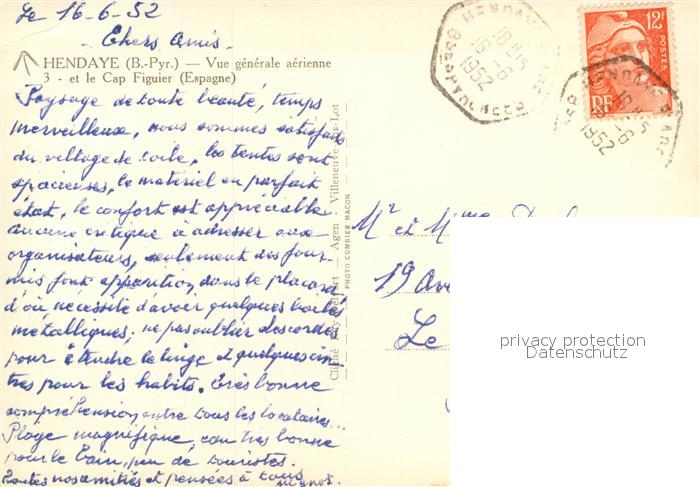 Le 16-6-52
- Chers Amis -
HENDAYE (B.-Pyr.) — Vue générale aérienne
3 - et le Cap Figuier (Espagne)
Paysage de toute beauté, temps
merveilleux, nous sommes satisfaits
du village de toile, les tentes sont
spacieuses, le matériel en parfait
état, le confort est appréciable
aucune critique à adresser aux
organisateurs, seulement des four-
mis font apparition dans le placard
d'où nécéssité d'avoir quelques boites
métalliques; ne pas oublier des cordes
pour étendre le linge et quelques cin-
tres pour les habits. Très bonne
compréhension entre tous les locataires...
Plage magnifique, eau très bonne
pour le bain, peu de touristes.
Toutes nos amitiés et pensées à tous
Cliché Agen - Villeneuve-sur-Lot
PHOTO COMBIER MACON
HENDAYE
18H15
16-6
1952
BSSES PYRENEES
12F
POSTES
RF
HENDAYE
18H15
16-6
1952
Mr et Mme
19 Ave
Le
privacy protection
Datenschutz